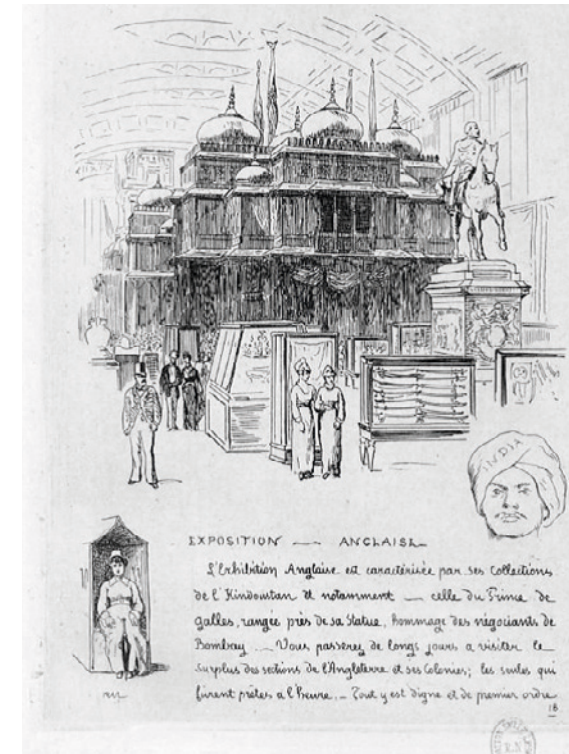 INDIA
EXPOSITION — ANGLAISE
L'Exhibition Anglaise est caractérisée par ses Collections
de l'Hindoustan et notamment — celle du Prince de
galles, rangée près de sa Statue, hommage des négociants de
Bombay — Vous passerez de longs jours a visiter le
surplus des sections de l'Angleterre et ses Colonies; les seules qui
furent prêtes a l'heure. — Tout y est digne et de premier ordre
18